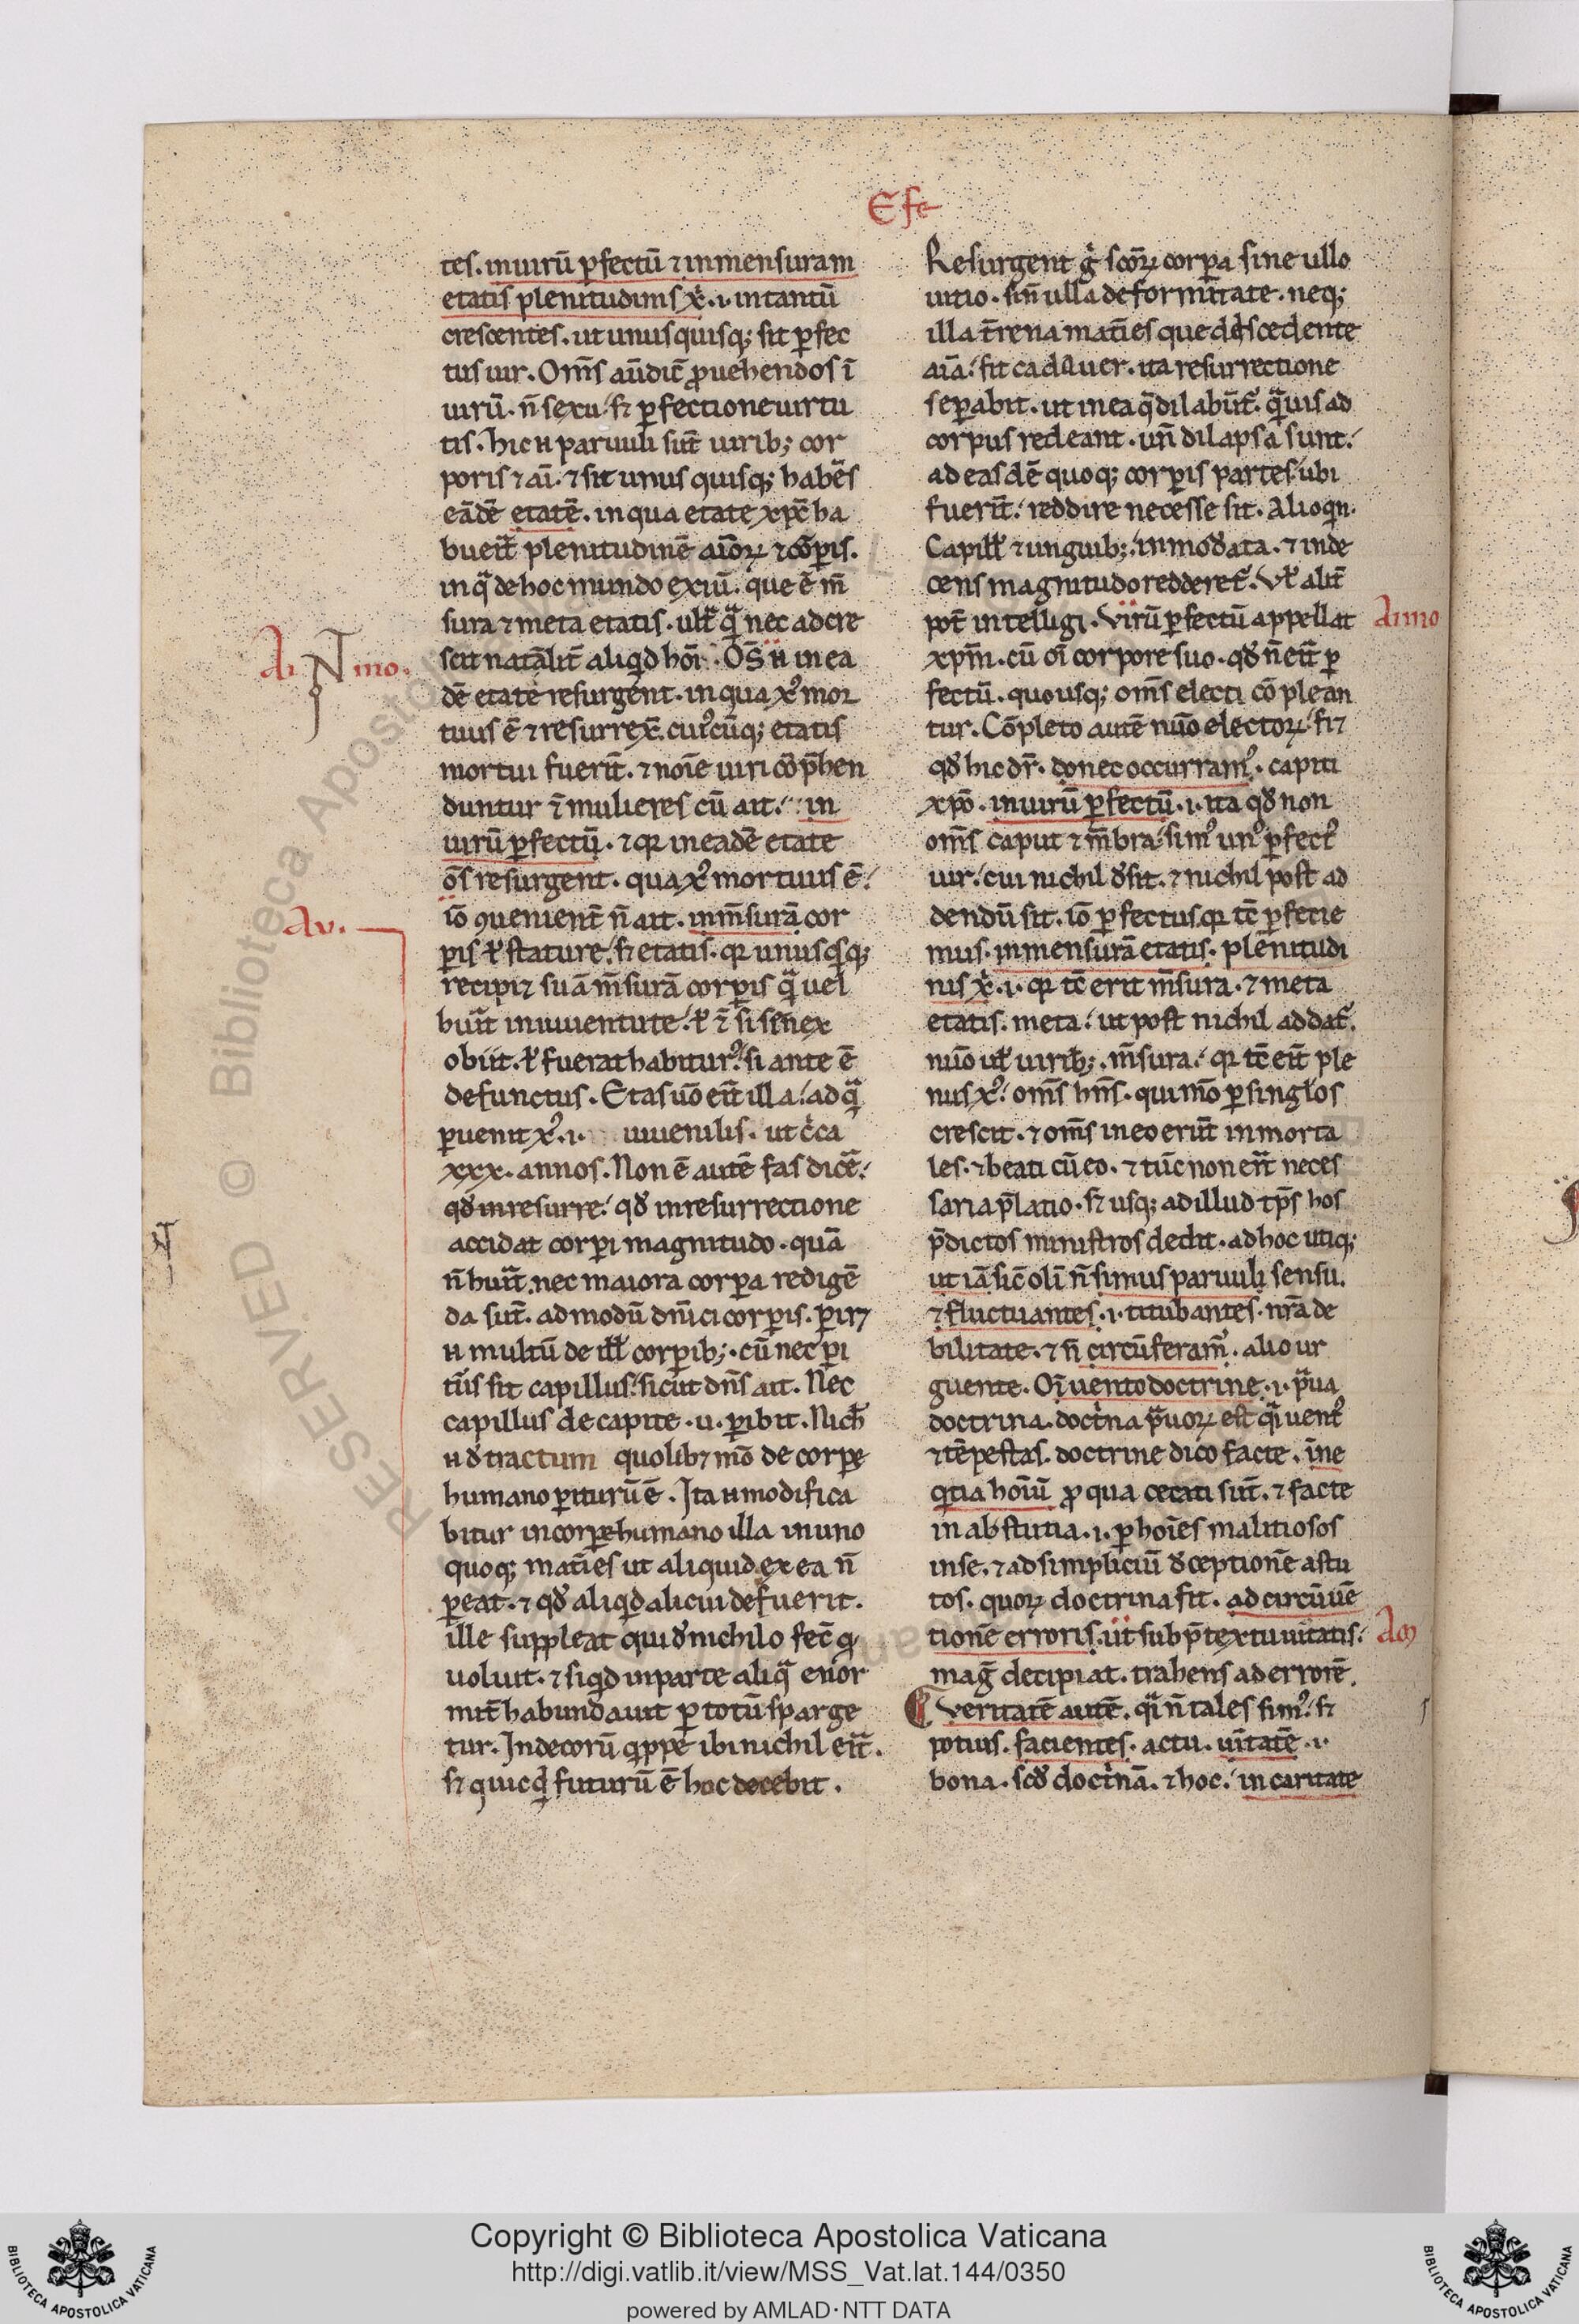 Efe
tes. inuirū ꝑfectū ⁊ inmensuram
etatis plenitudinis xp̄i. i. intantū
crescentes. ut unusquisq; sit ꝑfec
tus uir. Om̄s aūdic̄ ꝓuehendos ī
uirū. n̄ sexu. sꝫ ꝑfectione uirtu
tis. hic n̄ paruuli sūt uirib; cor
poris ⁊ aī. ⁊ sit unus quisq; habēs
eādē etatē. in qua etate xp̄c ha
buerit plenitudinē aīoꝝ ⁊ cōꝑis.
in q̄ de hoc mundo exiuī. que ē m̄
sura ⁊ meta etatis. ult̄ q̄ nec adcre
scit natālit̄ aliqd hōi. Oēs n̄ in ea
dē etate resurgent. in qua xp̄s mor
tuus ē ⁊ resurrex̄. cuiꝰcūq; etatis
mortui fuerīt. ⁊ noīe uiri cōp̄hen
duntur ⁊ mulieres cū ait. in
uirū ꝑfectū. ⁊ qꝛ in eadē etate
ōs resurgent. qua xꝰ mortuus ē.
iō ꝯuenient̄ n̄ ait. inm̄surā cor
ꝑis ł stature. sꝫ etatis. qꝛ unusqsq;
recipiꝫ suā m̄surā corꝑis q̄ uel
buit in iuuentute. ł ⁊ si senex
obiit. ł fuerat habiturꝰ. si ante ē
defunctus. Etas uō erit illa. ad q̄
ꝑuenit xꝰ. i. iuuenilis. ut c̄ca
xxx. annos. Non ē autē fas dicē.
qđ inresurre. qđ inresurrectione
accidat corꝑi magnitudo. quā
n̄ huit. nec maiora corꝑa redigē
da sūt. ad modū dn̄ici corꝑis. ꝑirꝫ
n̄ multū de ill̄ corꝑib;. cū nec ꝑi
tūs sit capillus. sicut dn̄s ait. Nec
capillus de capite. u. ꝑibit. Nich̄
n̄ đtractum quolibꝫ mō de corꝑe
humano ꝑiturū ē. Ita n̄ modifica
bitur in corꝑe humano illa in uno
quoq; mat̄ies ut aliquid ex ea n̄
ꝑeat. ⁊ qđ aliqd alicui defuerit.
ille suppleat qui đ nichilo fec̄ qđ
uoluit. ⁊ siqd inparte aliq̄ enor
mit̄ habundauit ꝑ totū sparge
tur. Indecorū qppe ibi nichil erit.
sꝫ quicqd futurū ē hoc decebit.
Resurgent g̊ scōꝝ corꝑa sine ullo
uitio. sin̄ ulla deformitate. neq;
illa t̄rena mat̄ies que discedente
aīa. fit cadauer. ita resurrectione
seꝑabit. ut in ea q̄ dilabūt̄. q̄uis ad
corpus redeant. un̄ dilapsa sunt.
ad easdē quoq; corꝑis partes ubi
fuerīt. reddire necesse sit. Alioqn.
Capill̄ ⁊ unguib; inmođata. ⁊ inde
cens magnitudo redderet̄. Vł alit̄
pot̄ intelligi. Virū ꝑfectū appellat
xp̄m. cū oī corpore suo. qđ n̄ erit ꝑ
fectū. quousq; om̄s electi cōplean
tur. Cōpleto autē nūo electoꝝ. fiꝫ
qđ hic dr̄. donec occurramꝰ. capiti
xp̄o. inuirū ꝑfectū. i. ita qđ non
om̄s caput ⁊ m̄bra. simꝰ unꝰ ꝑfectꝰ
uir. cui nichil đsit. ⁊ nichil post ad
dendū sit. iō ꝑfectus qꝛ tc̄ ꝑferie
mus. inmensurā etatis. plenitudi
nis xp̄i. i. qꝛ tc̄ erit m̄sura. ⁊ meta
etatis. meta. ut post nichil addat̄.
nūo ul̄ uirib;. m̄sura. qꝛ tc̄ erit ple
nus xꝰ. om̄s hn̄s. qui mō ꝑ singłos
crescit. ⁊ om̄s in eo erūt inmorta
les. ⁊ beati cū eo. ⁊ tūc non erit neces
saria p̄latio. sꝫ usq; ad illud tp̄s hos
p̄dictos ministros dedit. ad hoc utiq;
ut iā sic̄ olī n̄ simus paruuli sensu.
⁊ fluctuantes. i. titubantes. nr̄a de
bilitate. ⁊ n̄ circūferamꝰ. alio ur
guente. Oī uento doctrine. i. p̄ua
doctrina. doct̄na p̄uoꝝ est q̄i uentꝰ
⁊ tēpestas. doctrine dico facte. īne
qtia hoīuī ꝓ qua cecati sūt. ⁊ facte
in abstutia. i. ꝑ hoīes malitiosos
in se. ⁊ ad simpliciū đceptionē astu
tos. quoꝝ doctrina fit. ad circūuē
tionē erroris. ut sub p̄textu uitatis.
maḡ decipiat. trahens ad errorē.
Veritatē autē. q̄i n̄ tales simꝰ. sꝫ
potius. facientes. actu. uītatē. i.
bona. scđ doct̄nā. ⁊ hoc. in caritate
Aimo.
Au.
Aimo
Am
Copyright © Biblioteca Apostolica Vaticana
http://digi.vatlib.it/view/MSS_Vat.lat.144/0350
powered by AMLAD·NTT DATA